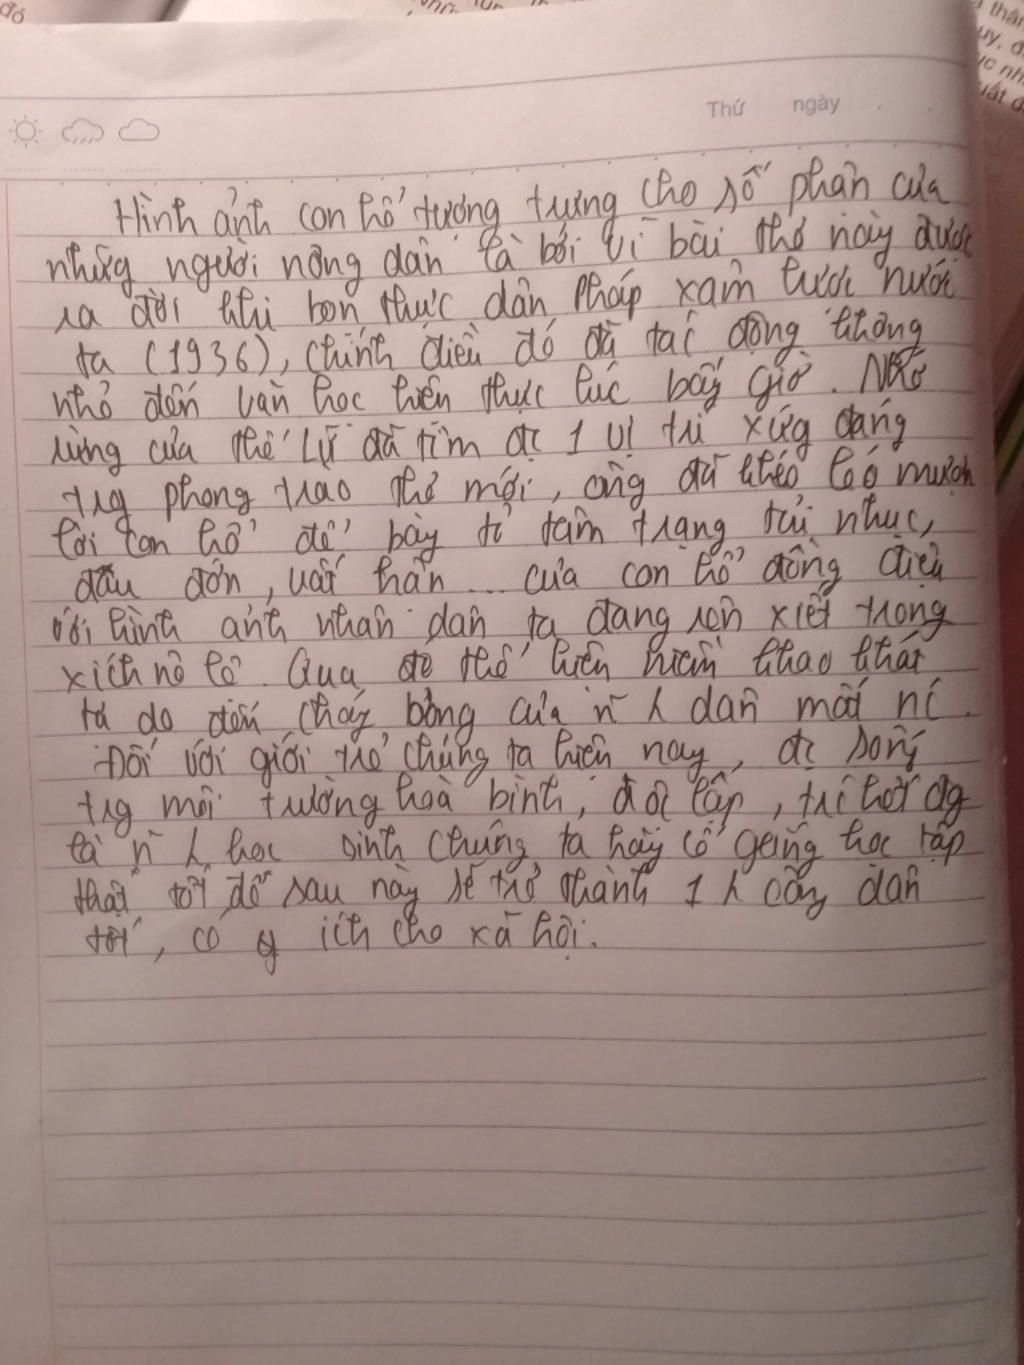 đó
Thứ ngày
Hình ảnh con hổ tượng trưng cho số phận của
những người nông dân là bởi vì bài thơ này được
ra đời khi bọn thực dân Pháp xâm lược nước
ta (1936), chính điều đó đã tác động không
nhỏ đến văn học hiện thực lúc bấy giờ. Nhớ
rừng của Thế Lữ đã tìm đc 1 vị trí xứg đáng
trg phong trào thơ mới, ông đã khéo léo mượn
lời con hổ để bày tỏ tâm trạng tủi nhục,
đau đớn, uất hận... của con hổ đồng điệu
với hình ảnh nhân dân ta đang rên xiết trong
xích nô lệ. Qua đó thể hiện niềm khao khát
tự do đến cháy bỏng của ~n~ dân mất nc.
Đối với giới trẻ chúng ta hiện nay, đc sống
trg môi trường hoà bình, độc lập,
là ~n~ học sinh chúng ta hãy cố gắng học tập
thật tốt để sau này sẽ trở thành 1 công dân
tốt, có ích cho xã hội.